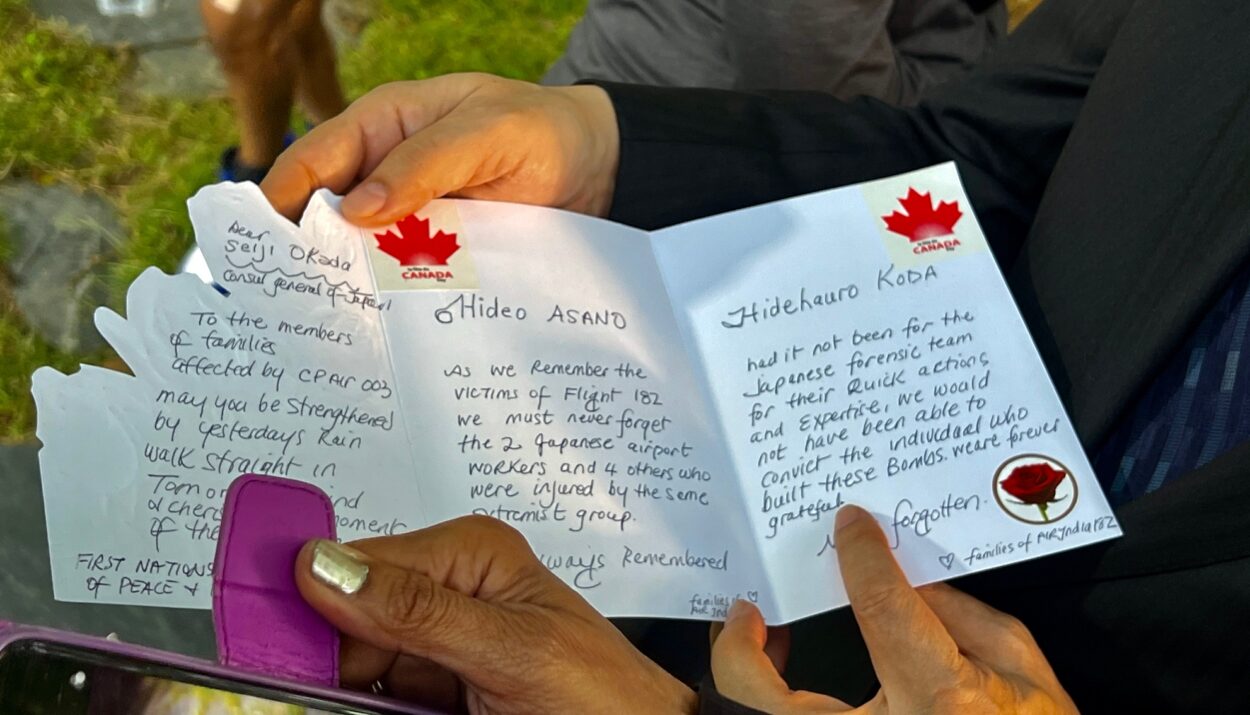 Dear
Seiji Okada
Consul general of Japan
To the members
of families
affected by CPAir 003
may you be strengthened
by yesterdays Rain
walk straight in
of the
FIRST NATIONS
OF PEACE +
CANADA
Hideo ASANO
As we Remember the
victims of Flight 182
we must never forget
the 2 Japanese airport
workers and 4 others who
were injured by the same
extremist group.
Remembered
families
CANADA
Hidehauro KODA
had it not been for the
Japanese forensic team
for their Quick actions
and Expertise, we would
not have been able to
convict the individual who
built these Bombs. we are forever
grateful
forgotten.
♡ families of AIR India 182